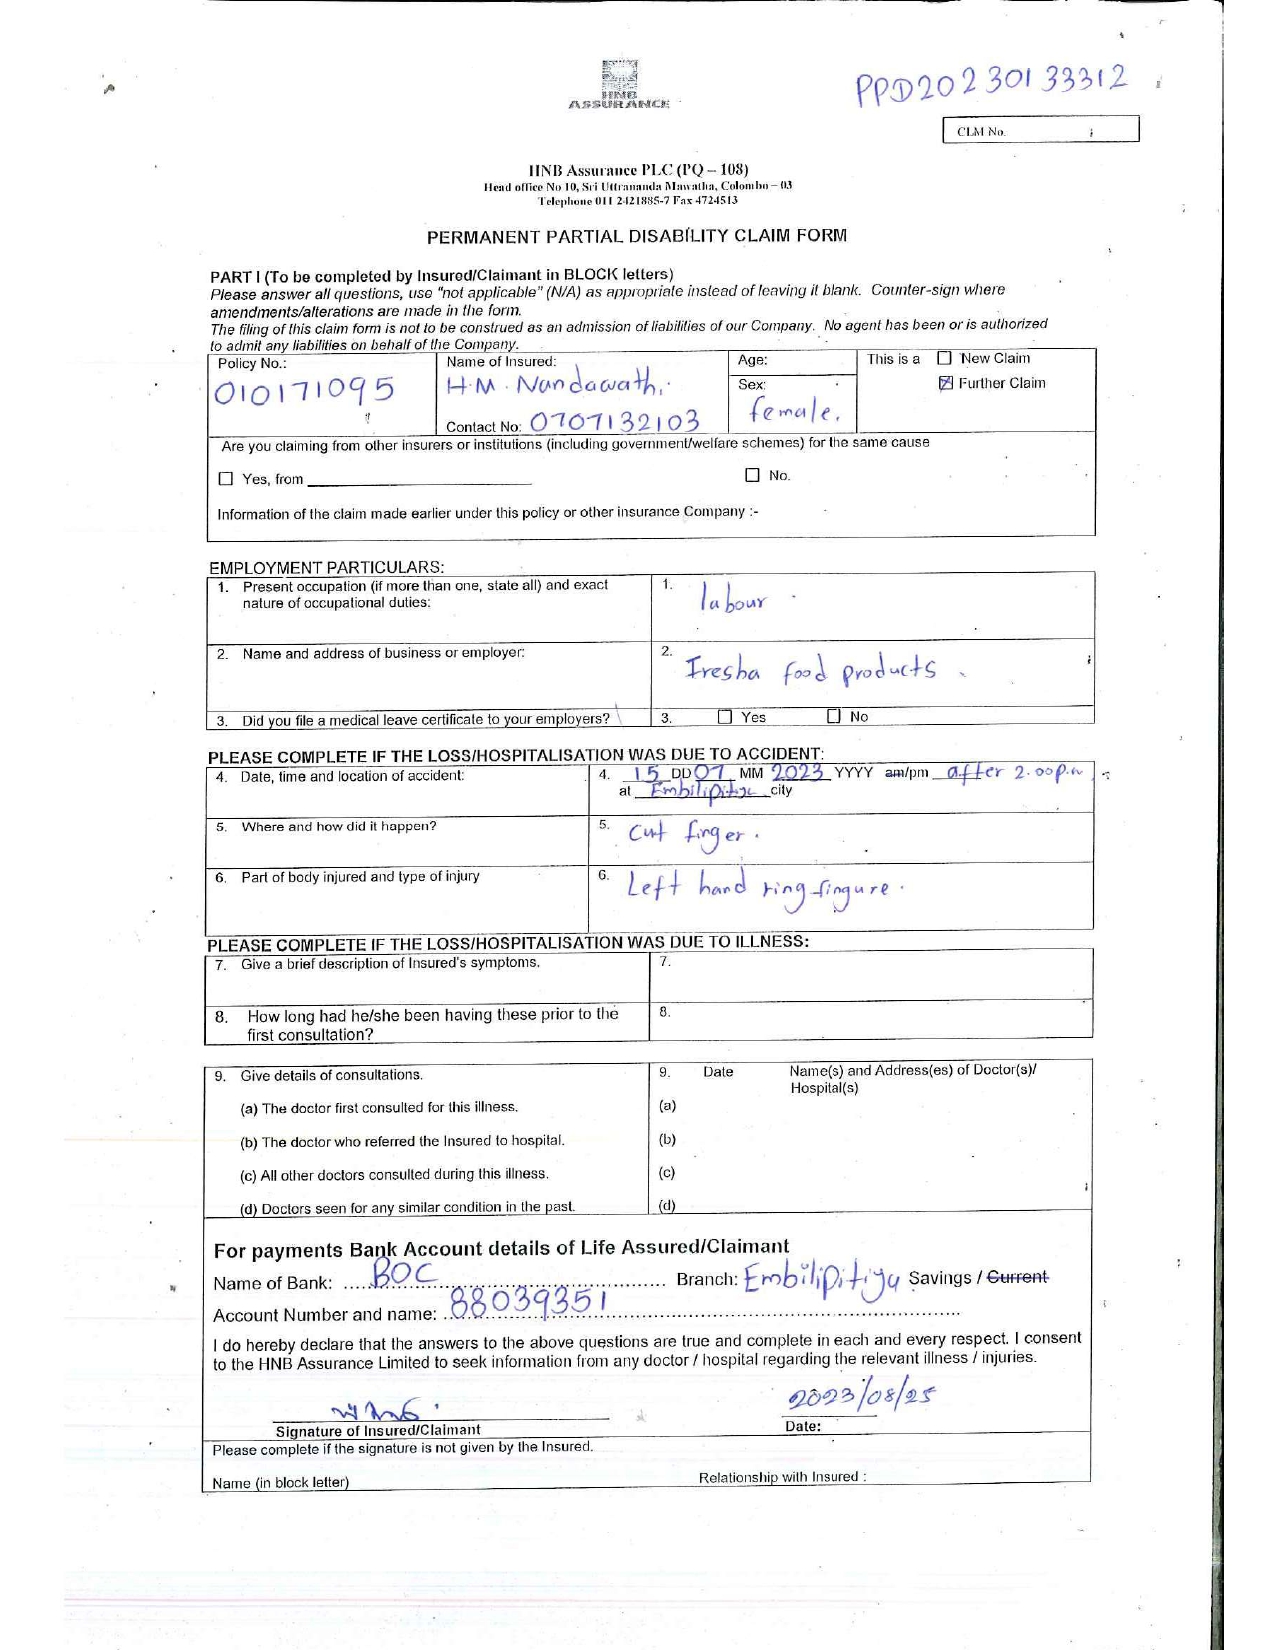 HNB
ASSURANCE
PPD20230133312
CLM No.
HNB Assurance PLC (PQ – 108)
Head office No 10, Sri Uttrananda Mawatha, Colombo – 03
Telephone 011 2421885-7 Fax 4724513
PERMANENT PARTIAL DISABILITY CLAIM FORM
PART I (To be completed by Insured/Claimant in BLOCK letters)
Please answer all questions, use "not applicable" (N/A) as appropriate instead of leaving it blank. Counter-sign where
amendments/alterations are made in the form.
The filing of this claim form is not to be construed as an admission of liabilities of our Company. No agent has been or is authorized
to admit any liabilities on behalf of the Company.
Policy No.: Name of Insured: Age: This is a ☐ New Claim
010171095 H.M. Nandawathi. Sex: ☒ Further Claim
Contact No: 0707132103 female.
Are you claiming from other insurers or institutions (including government/welfare schemes) for the same cause
☐ Yes, from ☐ No.
Information of the claim made earlier under this policy or other insurance Company :-
EMPLOYMENT PARTICULARS:
1. Present occupation (if more than one, state all) and exact 1. labour
nature of occupational duties:
2. Name and address of business or employer: 2. Iresha food products
3. Did you file a medical leave certificate to your employers? 3. ☐ Yes ☐ No
PLEASE COMPLETE IF THE LOSS/HOSPITALISATION WAS DUE TO ACCIDENT:
4. Date, time and location of accident: 4. 15 DD 07 MM 2023 YYYY am/pm after 2.00p.m
at Embilipitiya city
5. Where and how did it happen? 5. Cut finger.
6. Part of body injured and type of injury 6. Left hand ring fingure.
PLEASE COMPLETE IF THE LOSS/HOSPITALISATION WAS DUE TO ILLNESS:
7. Give a brief description of Insured's symptoms. 7.
8. How long had he/she been having these prior to the 8.
first consultation?
9. Give details of consultations. 9. Date Name(s) and Address(es) of Doctor(s)/
Hospital(s)
(a) The doctor first consulted for this illness. (a)
(b) The doctor who referred the Insured to hospital. (b)
(c) All other doctors consulted during this illness. (c)
(d) Doctors seen for any similar condition in the past. (d)
For payments Bank Account details of Life Assured/Claimant
Name of Bank: BOC Branch: Embilipitiya Savings / Current
Account Number and name: 88039351
I do hereby declare that the answers to the above questions are true and complete in each and every respect. I consent
to the HNB Assurance Limited to seek information from any doctor / hospital regarding the relevant illness / injuries.
2023/08/25
Signature of Insured/Claimant Date:
Please complete if the signature is not given by the Insured.
Name (in block letter) Relationship with Insured :